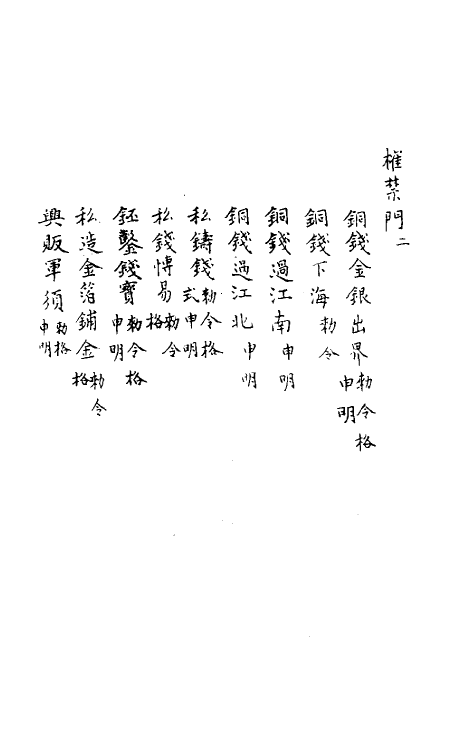 榷禁門二
銅錢金銀出界勅令格申明
銅錢下海勅令
銅錢過江南申明
銅錢過江北申明
私鑄錢勅令格式申明
私錢博易勅令格
鈺鑿錢寶勅令格申明
私造金箔鋪金勅令格
興販軍須勅格申明